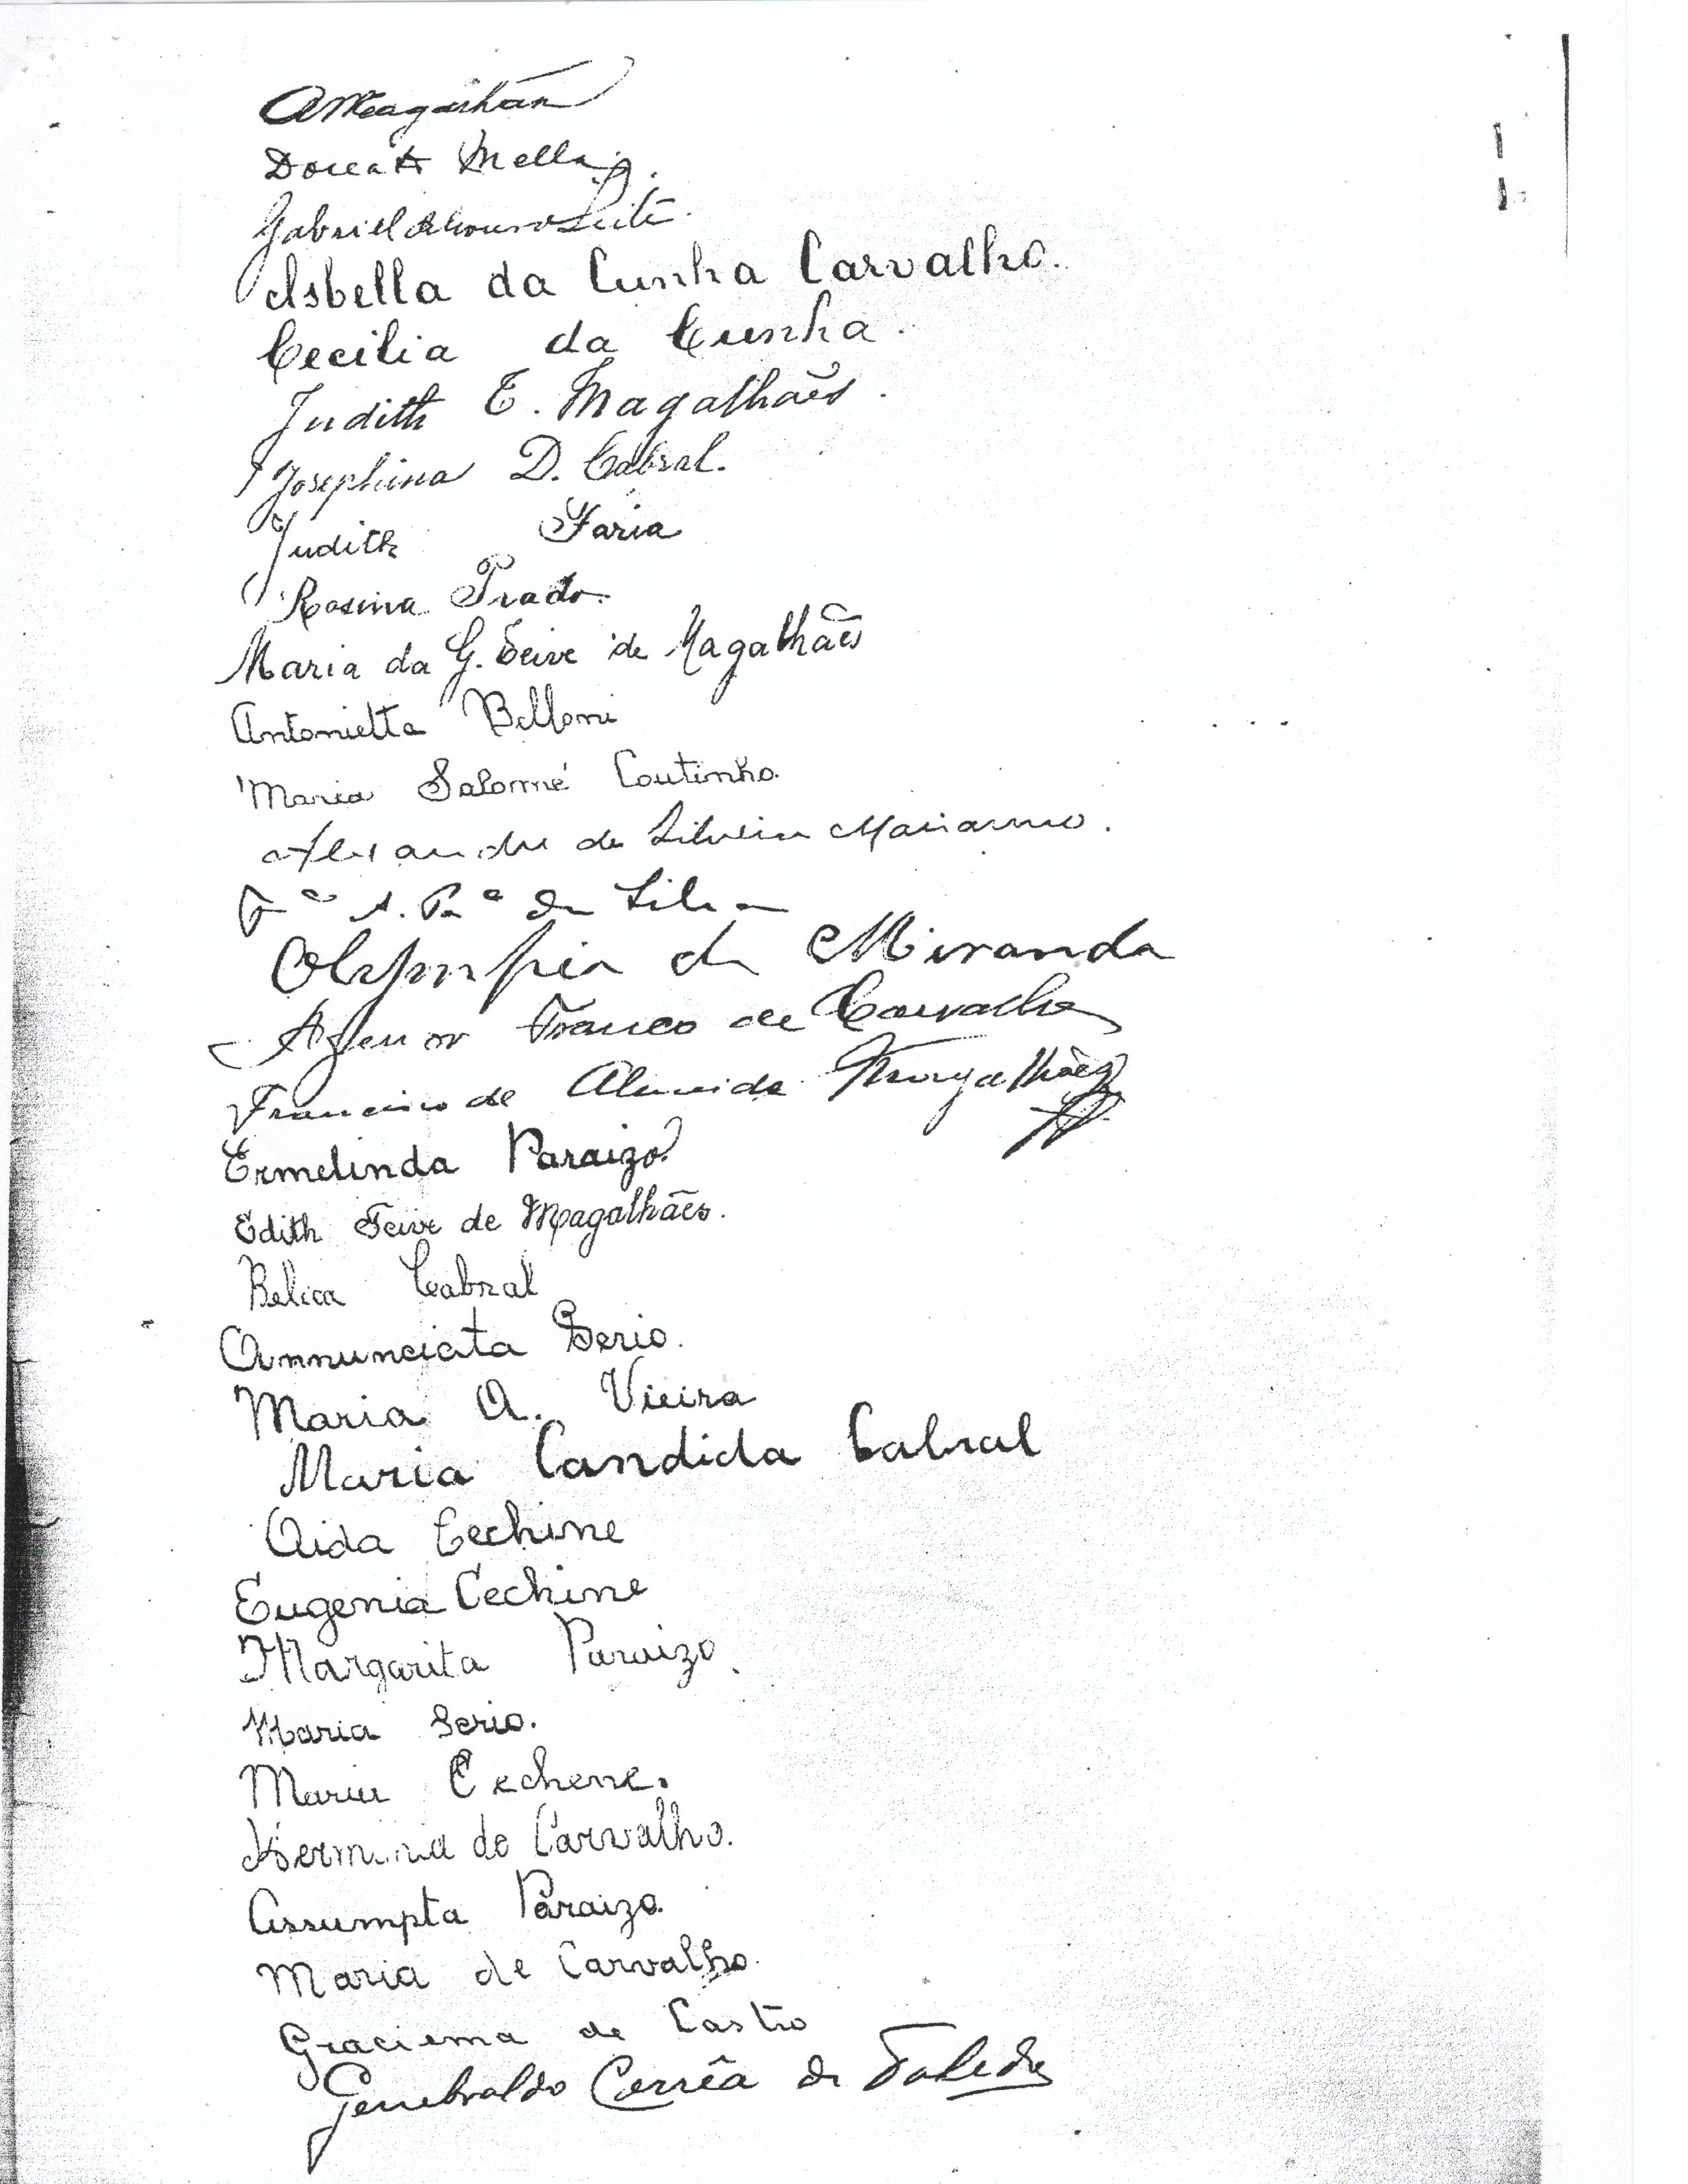 Gabriel Leite.
Isbella da Cunha Carvalho.
Cecilia da Cunha.
Judith T. Magalhães.
Josephina D. Cabral.
Judith Faria
Rosina Prado.
Maria da G. Teive de Magalhães
Antonietta Belloni
Maria Salomé Coutinho.
Alexandre da Silveira Marianno.
A. da Silva
Olympia de Miranda
Agenor Franco de Carvalho
Francisco de Almeida Magalhães
Ermelinda Paraizo.
Edith Teive de Magalhães.
Belica Cabral
Annunciata Serio.
Maria A. Vieira
Maria Candida Cabral
Aida Cechine
Eugenia Cechine
Margarita Paraizo.
Maria Serio.
Maria Cechene.
Hermina de Carvalho.
Assumpta Paraizo.
Maria de Carvalho.
Graciema de Castro
Genebraldo Corrêa de Toledo